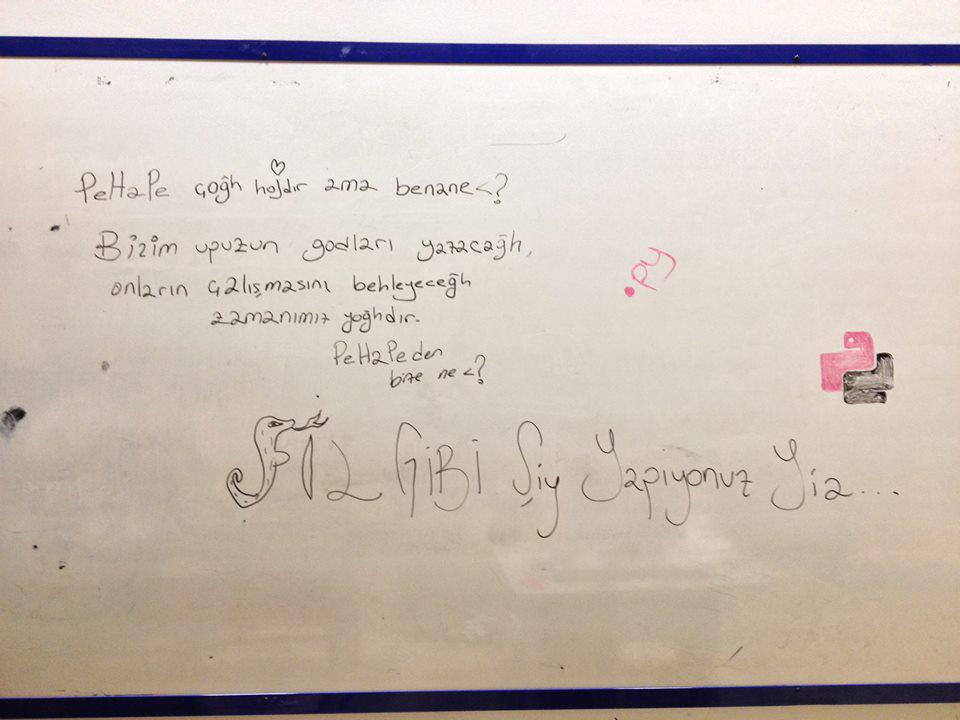 PeHaPe çoğh hojdır ama benane<?
Bizim upuzun godları yazacağh,
onların çalışmasını behleyeceğh
zamanımız yoğhdır.
PeHaPeden
bize ne<?
.py
GİBİ Şiy Yapiyonuz Yia...